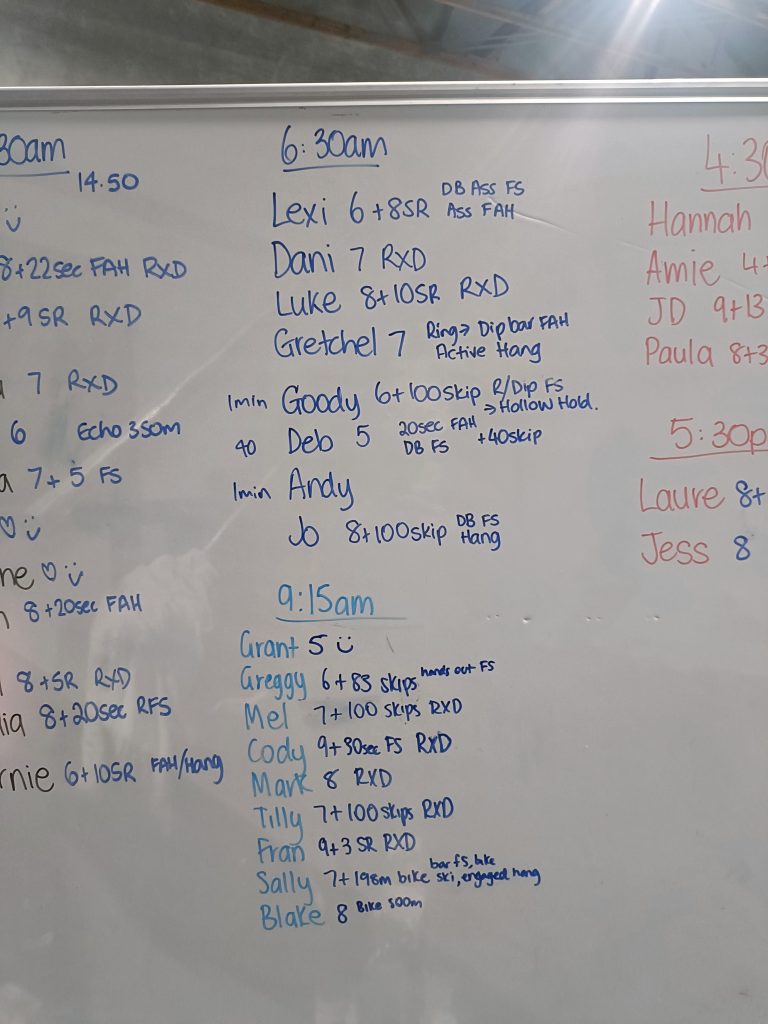 30am
14.50
8+22sec FAH RXD
+9SR RXD
7 RXD
6 Echo 350m
a 7+5 FS
ne
8+20sec FAH
8+5R RXD
lia 8+20sec RFS
rnie 6+10SR FAH/Hang
6:30am
Lexi 6+8SR DB Ass FS
Ass FAH
Dani 7 RXD
Luke 8+10SR RXD
Gretchel 7 Ring→ Dip bar FAH
Active Hang
1min Goody 6+100skip R/Dip FS
→Hollow Hold.
40 Deb 5 20sec FAH +40skip
DB FS
1min Andy
Jo 8+100skip DB FS
Hang
9:15am
Grant 5
Greggy 6+83 skips hands out FS
Mel 7+100 skips RXD
Cody 9+30sec FS RXD
Mark 8 RXD
Tilly 7+100skips RXD
Fran 9+3 SR RXD
Sally 7+198m bike bar fs, bike
ski, engaged hang
Blake 8 Bike 500m
4:30
Hannah
Amie 4+
JD 9+13
Paula 8+3
5:30p
Laure 8+
Jess 8